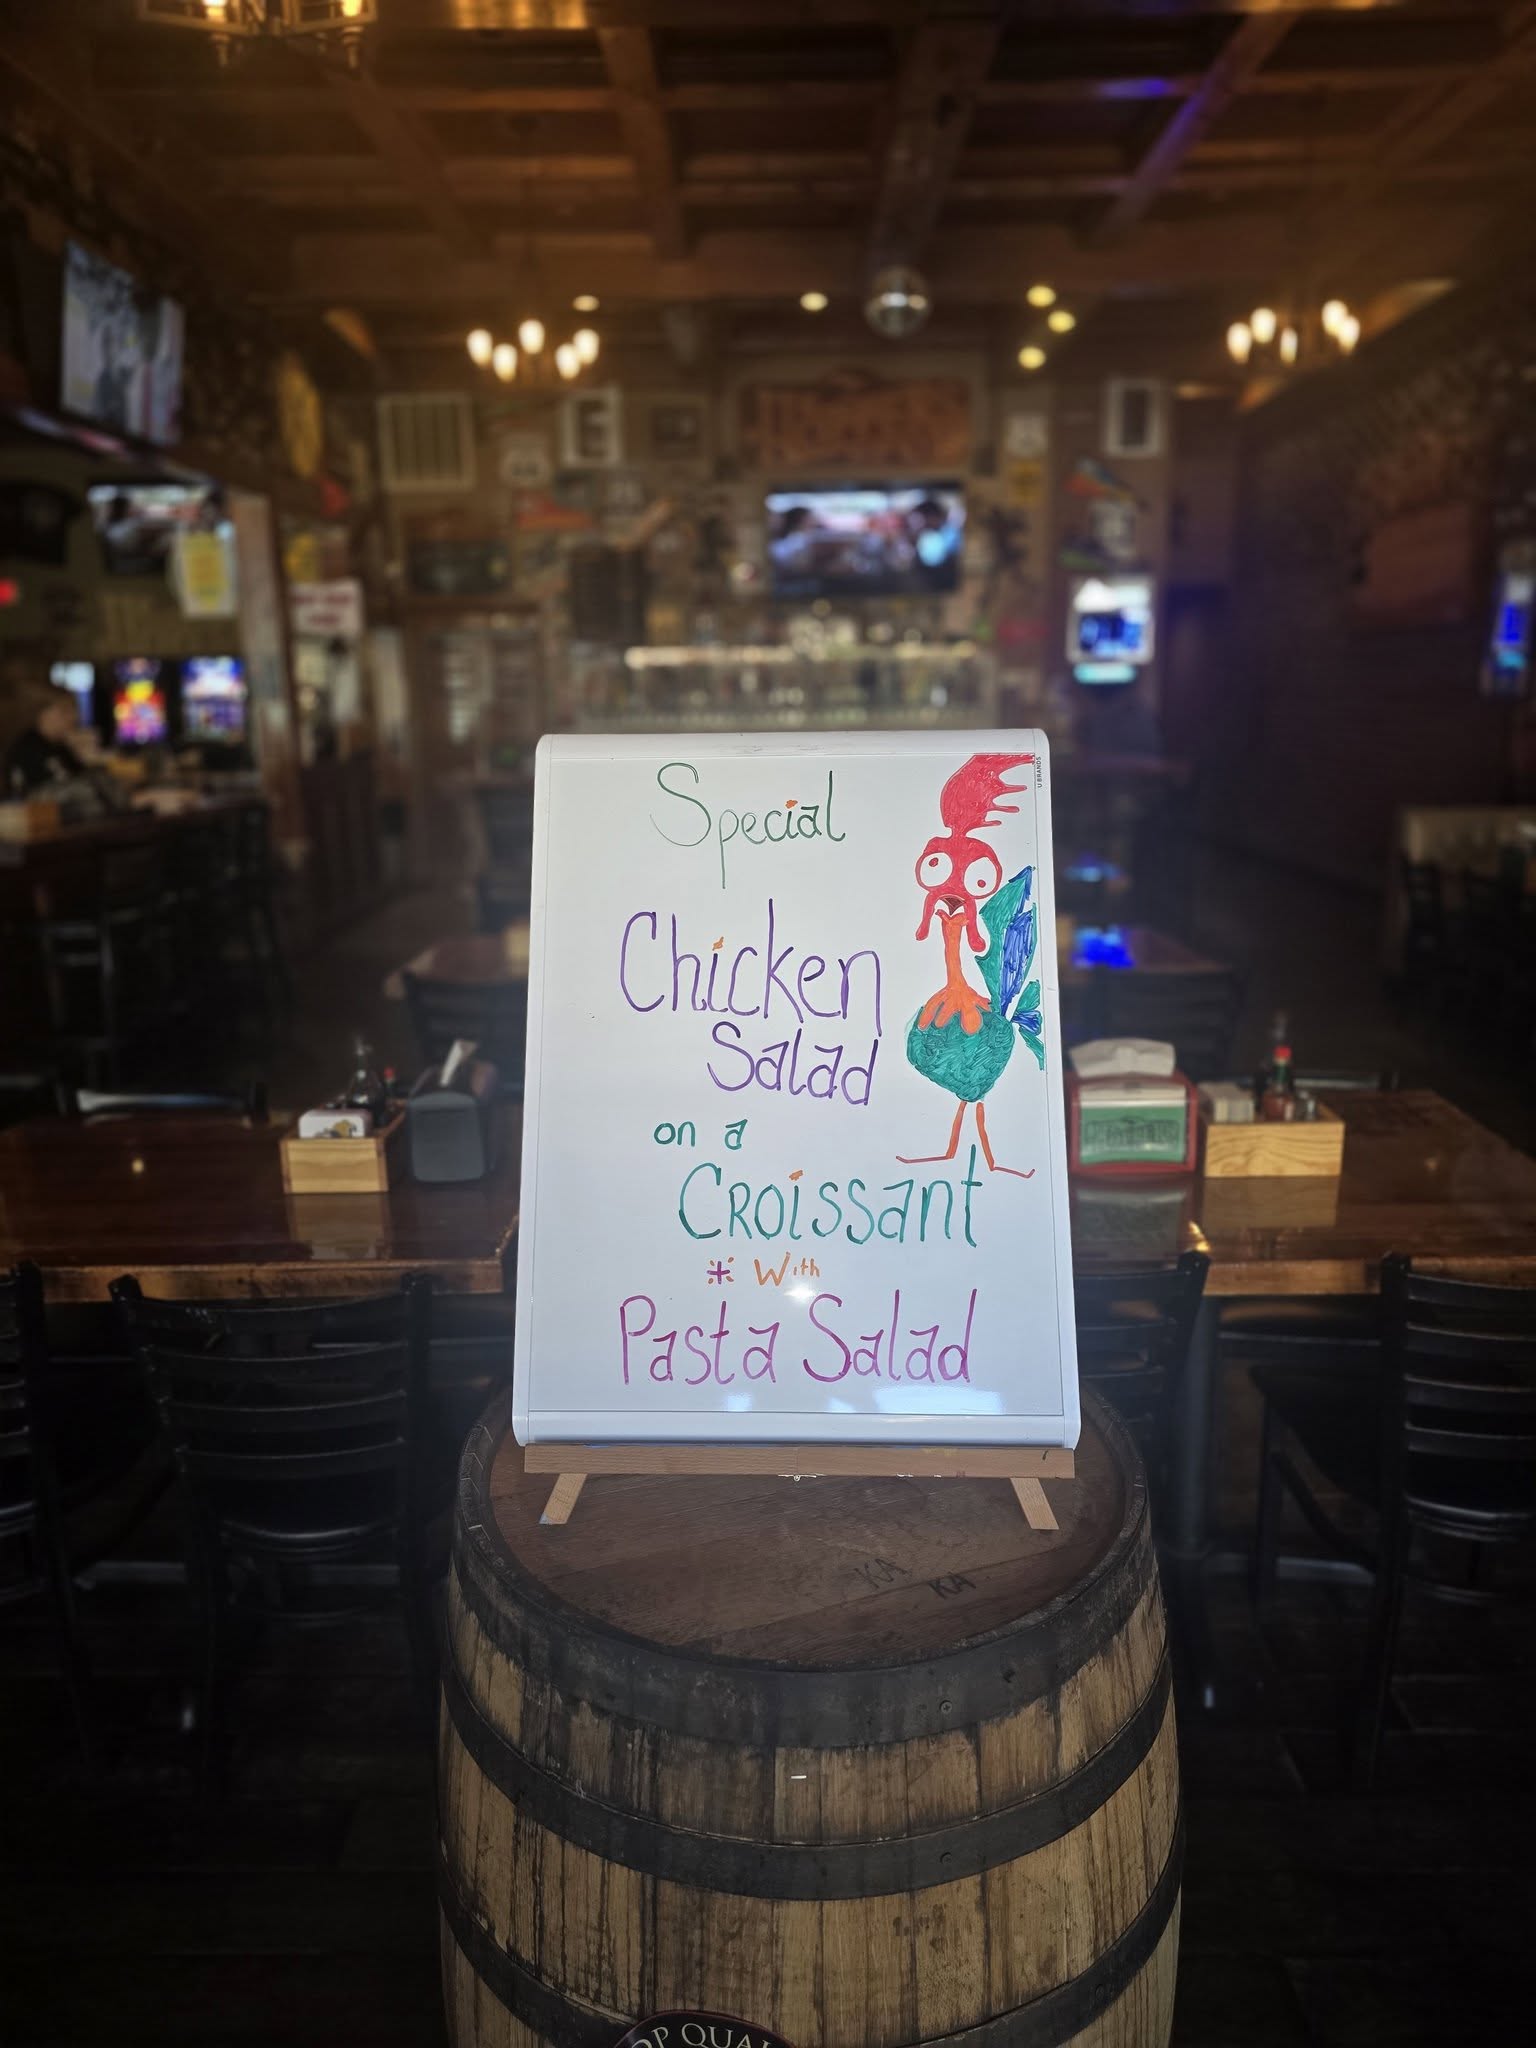 Special
Chicken
Salad
on a
CROissant
* With
Pasta Salad
U BRANDS
KA
KA
OP QUAL